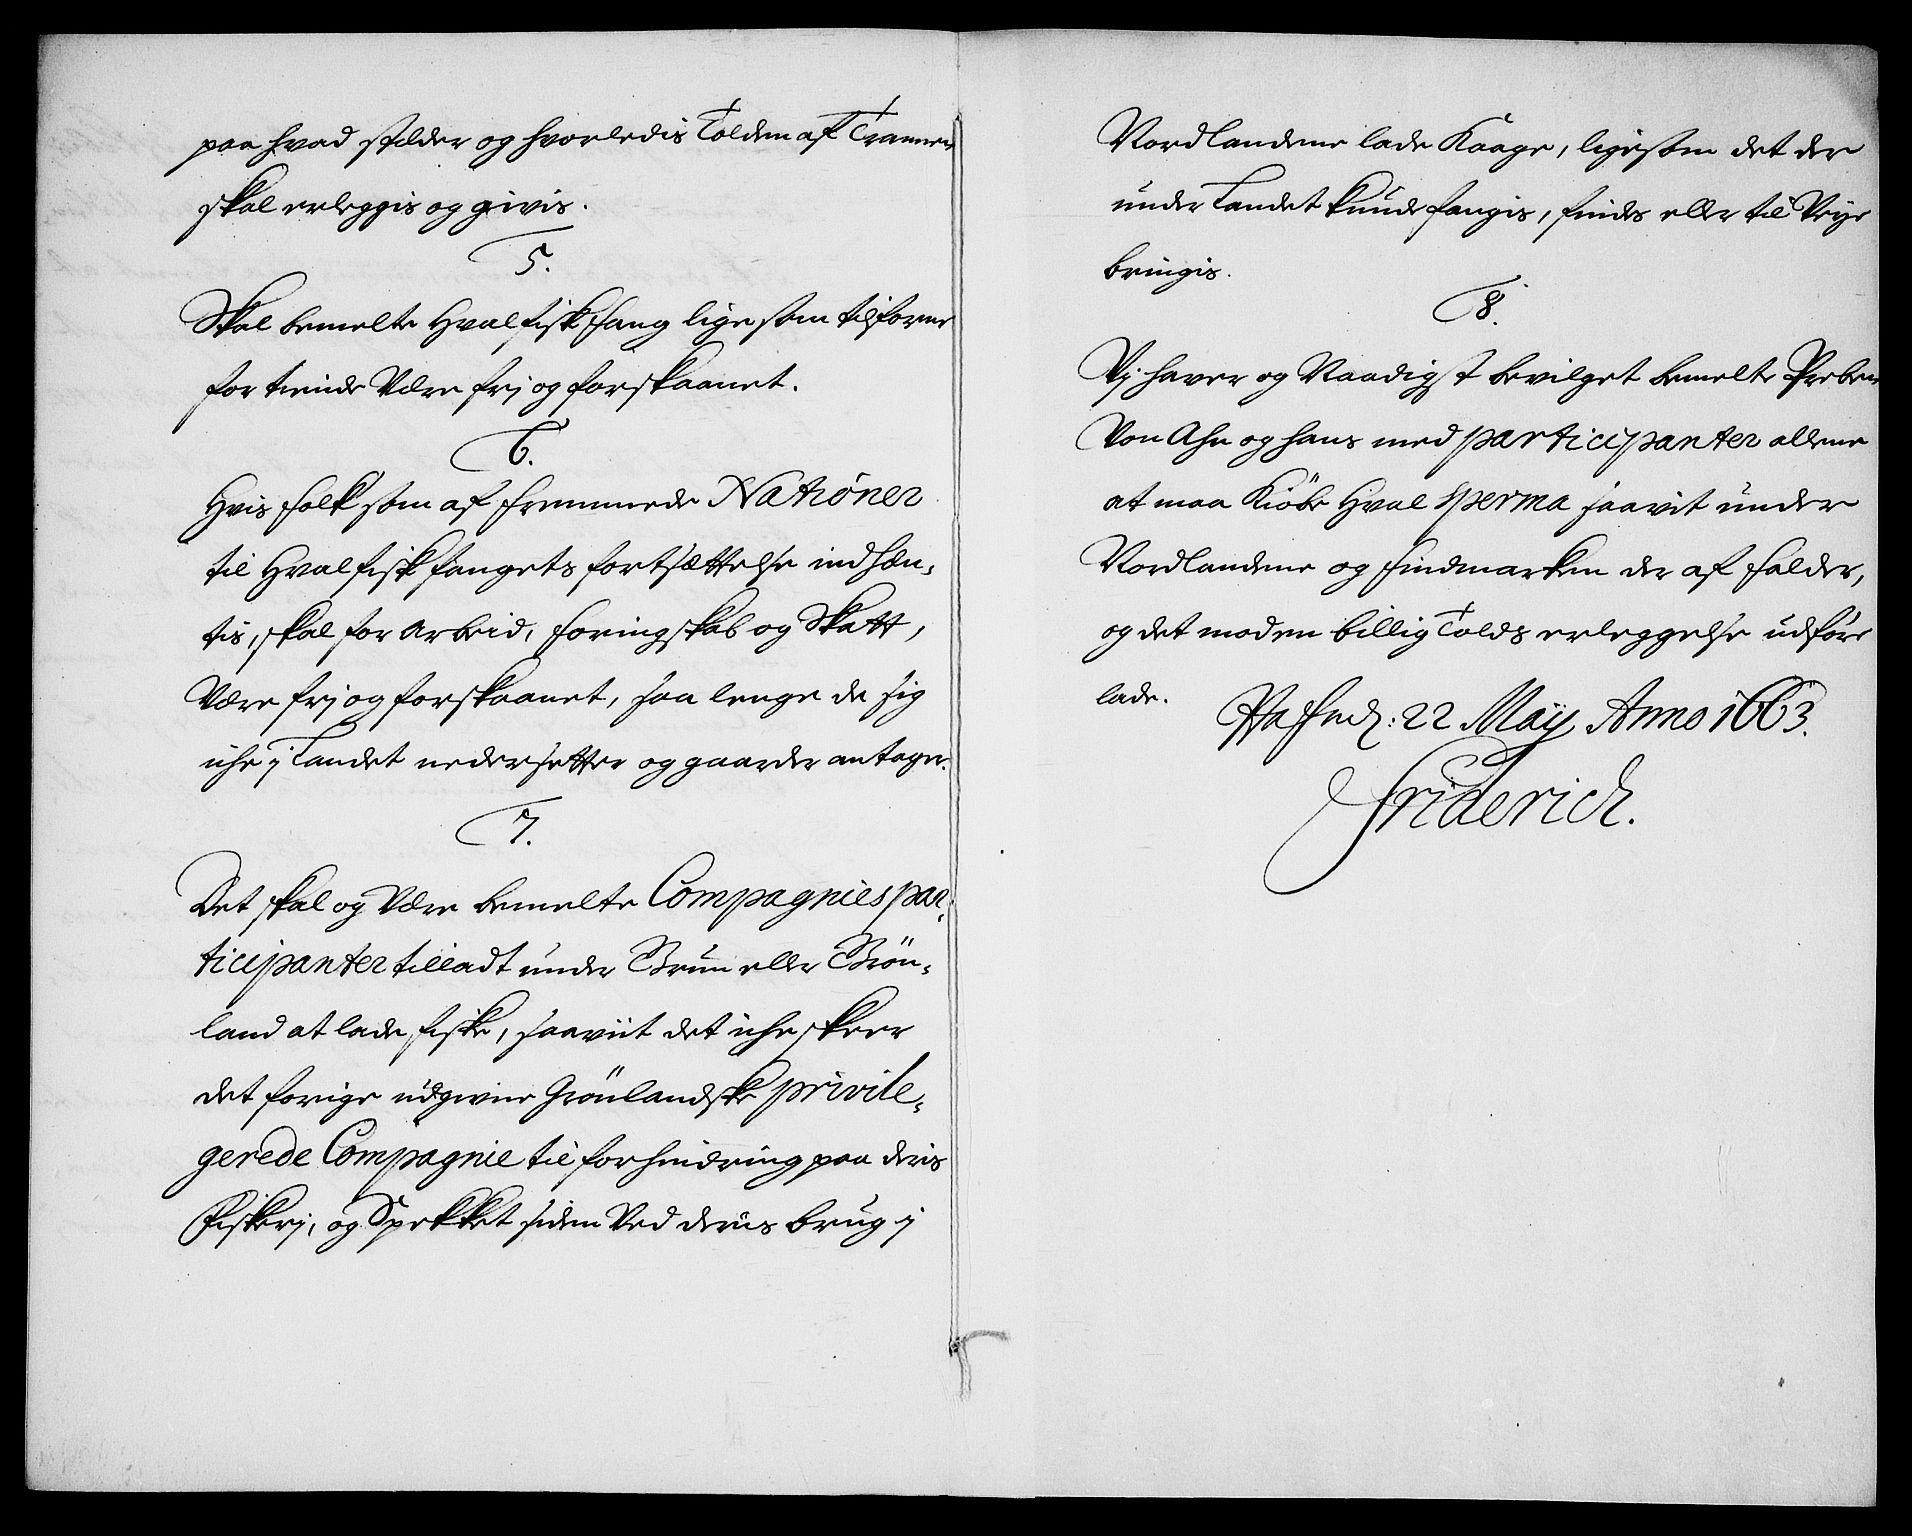 paa hvad stæder og hvorledis Tolden af Trannen
skal erleggis og givis.
5.
Skal bemelte Hvalfiskfang lige som tilforne
for tiende Være frj og forskaanet.
6.
Hvis folk som af fremmede Nationer
til Hvalfiskfangets fortsættelse indhæn-
tis, skal for arbeid, foringskab og Skatt,
Være frj og forskaanet, saa lenge de sig
iche j Landet nedersetter og gaarder antager.
7.
Det skal og Være bemelte Compagnies par-
ticipanter tilladt under Brun eller Grön-
land at lade fiske, saaviit det iche skeer
det forige udgivne Grönlandske privile-
gerede Compagnie til forhindring paa deris
Fiskerj, og Spekket siden Ved deris brug j
Nordlandene lade Kaage, ligesom det der
under Landet kunde fangis, findes eller til Veye
bringis.
8.
Vj haver og Naadigst bevilget bemelte Preben
Von Ahn og hans med participanter allene
at maa Kiöbe Hval sperma saavit under
Nordlandene og Findmarken der af falder,
og det mod en billig Tolds erleggelse udföre
lade.
Hafnæ: 22 Maÿ Anno 1663.
Friderich.